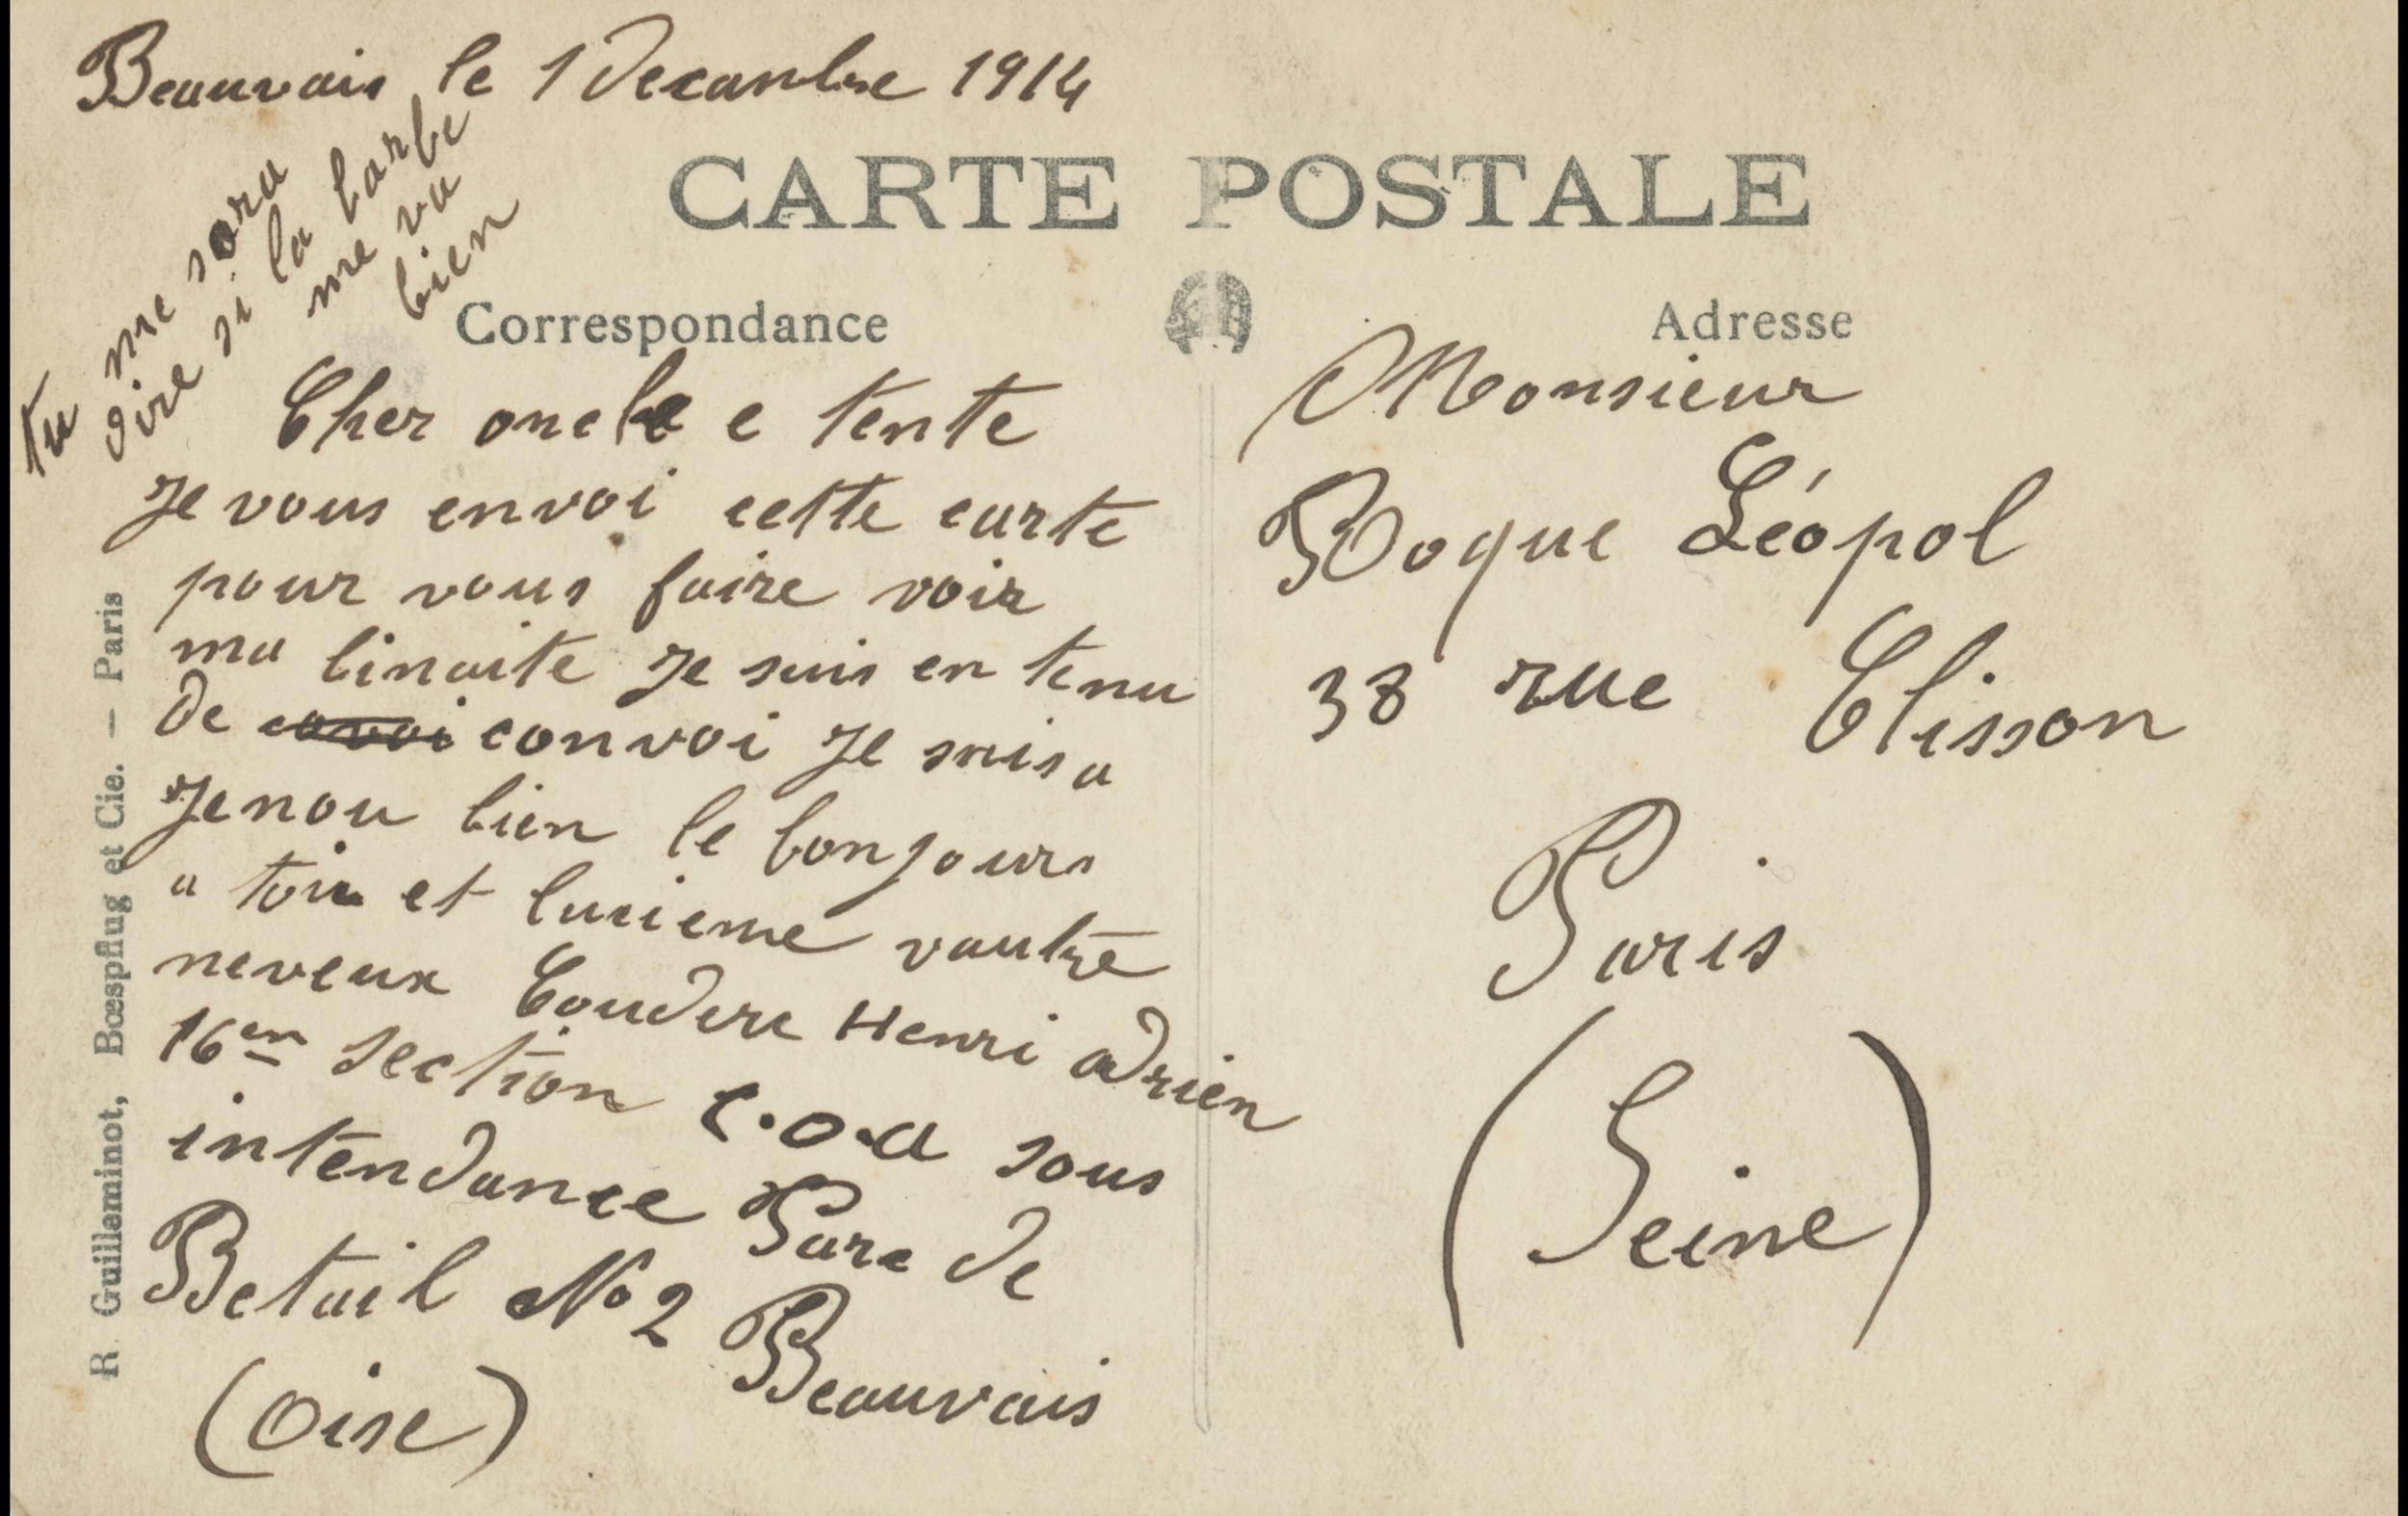 Beauvais le 1 Decambre 1914
tu me sora
dire si la barbe
me va
bien
CARTE POSTALE
Correspondance
Adresse
Cher oncle e tente
Je vous envoi cette carte
pour vous faire voir
ma binaite Je suis en tenu
de convoi Je suis a
Jenou bien le bonjours
a toi et lucieme vautre
neveux Couderc Henri adrien
16em section C.O.A sous
intendance Parc de
Betail No 2 Beauvais
(Oise)
Monsieur
Roque Léopol
38 rue Clisson
Paris
(Seine)
R. Guilleminot, Bœspflug et Cie. — Paris